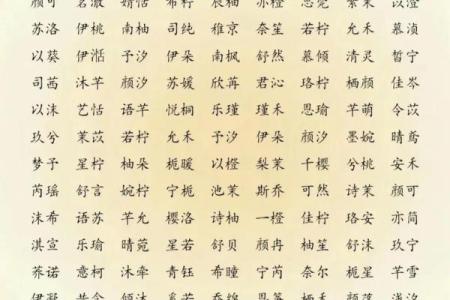 颜可 茗澈 婧恬 希柠 辰柚 亦橙 思觉 紫茉 以澄
苏洛 伊桃 南柚 司纯 稚京 奈笙 若柠 允禾 慕湞
以葵 伊湉 予汐 伊朵 南枫 舒然 慕倾 清灵 皙宁
司茜 沐芊 颜汐 苏媛 欣苒 君沁 珞柠 栖颜 佳岑
以沫 艺恬 语芊 悦桐 乐瑾 瑾禾 思瑜 芊萌 令苡
玖兮 茉苡 若柠 允禾 予汐 伊朵 颜汐 墨婉 晴鸢
梦予 星柠 柚朵 栀暖 以橙 梨茉 千樱 兮桃 安禾
芮瑶 舒言 婉柠 宁栀 池茉 斯乔 可然 诗茉 颜可
沫希 语苏 芊允 樱洛 诗柚 一橙 佳柠 珞安 亦简
淇宣 乐瑜 晴菀 星若 舒贝 颜冉 柚笙 舒沫 玖宁
荞诺 意柯 沐牵 青钰 希瞳 宁芮 奈尔 栀星 芊雪